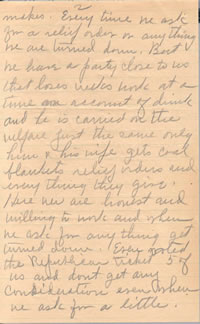 2
makes. Every time we ask
for a relief order or any thing
we are turned down. But
we have a party close to us
that loses weeks work at a
time on account of drink
and he is carried on the
welfare just the same only
him & his wife gets coal
blankets relief orders and
every thing they give.
Here we are honest and
willing to work and when
we ask for any thing get
turned down. Even voted
the Republican ticket 5 of
us and dont get any
consideration even when
we ask for a little.